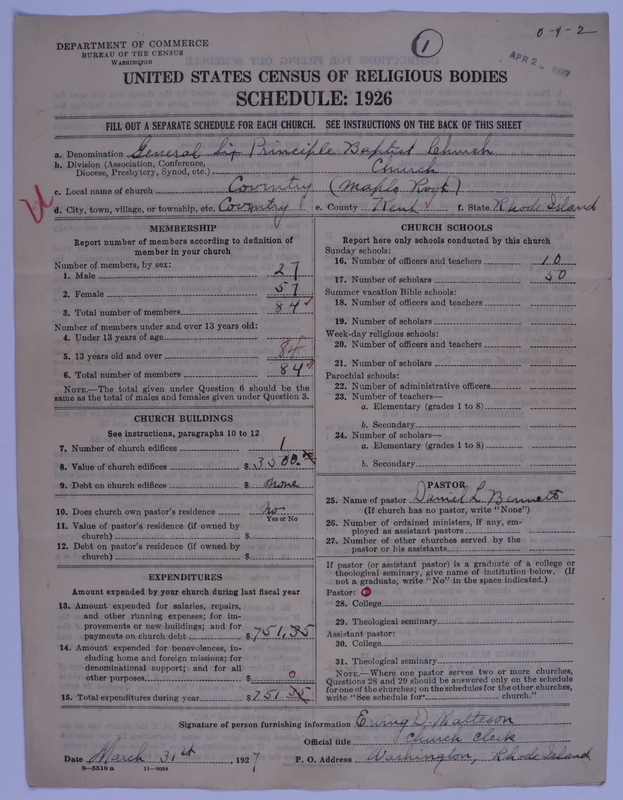 0-4-2
1
APR 2 - 1927
DEPARTMENT OF COMMERCE
BUREAU OF THE CENSUS
WASHINGTON
UNITED STATES CENSUS OF RELIGIOUS BODIES
SCHEDULE: 1926
FILL OUT A SEPARATE SCHEDULE FOR EACH CHURCH. SEE INSTRUCTIONS ON THE BACK OF THIS SHEET
a. Denomination General Six Principle Baptist Church
b. Division (Association, Conference, Diocese, Presbytery, Synod, etc.) Church
c. Local name of church Coventry (Maple Root)
d. City, town, village, or township, etc. Coventry e. County Kent f. State Rhode Island
MEMBERSHIP
Report number of members according to definition of
member in your church
Number of members, by sex:
1. Male 27
2. Female 57
3. Total number of members 84
Number of members under and over 13 years old:
4. Under 13 years of age
5. 13 years old and over 84
6. Total number of members 84
NOTE.—The total given under Question 6 should be the
same as the total of males and females given under Question 3.
CHURCH BUILDINGS
See instructions, paragraphs 10 to 12
7. Number of church edifices 1
8. Value of church edifices $ 3500.00
9. Debt on church edifices $ none
10. Does church own pastor's residence No
Yes or No
11. Value of pastor's residence (if owned by
church) $
12. Debt on pastor's residence (if owned by
church) $
EXPENDITURES
Amount expended by your church during last fiscal year
13. Amount expended for salaries, repairs,
and other running expenses; for im-
provements or new buildings; and for
payments on church debt $ 751.35
14. Amount expended for benevolences, in-
cluding home and foreign missions; for
denominational support; and for all
other purposes $ 0
15. Total expenditures during year $ 751.35
CHURCH SCHOOLS
Report here only schools conducted by this church
Sunday schools:
16. Number of officers and teachers 10
17. Number of scholars 50
Summer vacation Bible schools:
18. Number of officers and teachers
19. Number of scholars
Week-day religious schools:
20. Number of officers and teachers
21. Number of scholars
Parochial schools:
22. Number of administrative officers
23. Number of teachers—
a. Elementary (grades 1 to 8)
b. Secondary
24. Number of scholars—
a. Elementary (grades 1 to 8)
b. Secondary
PASTOR
25. Name of pastor Daniel L. Bennett
(If church has no pastor, write "None")
26. Number of ordained ministers, if any, em-
ployed as assistant pastors
27. Number of other churches served by the
pastor or his assistants
If pastor (or assistant pastor) is a graduate of a college or
theological seminary, give name of institution below. (If
not a graduate, write "No" in the space indicated.)
Pastor: 0
28. College
29. Theological seminary
Assistant pastor:
30. College
31. Theological seminary
NOTE.—Where one pastor serves two or more churches,
Questions 28 and 29 should be answered only on the schedule
for one of the churches; on the schedules for the other churches,
write "See schedule for church."
Signature of person furnishing information Ewing D. Matteson
Official title Church Clerk
Date March 31st, 1927 P. O. Address Washington, Rhode Island
8—5518 a 11—9054